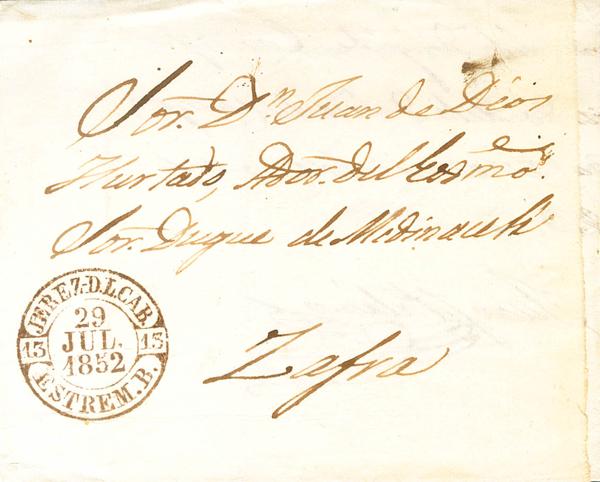 Sor. Dn. Juan de Dios
Hurtado, Ador. del Excmo.
Sor. Duque de Medinaceli
Zafra
JEREZ-D.L.CAB.
29
JUL.
1852
13 13
ESTREM. B.